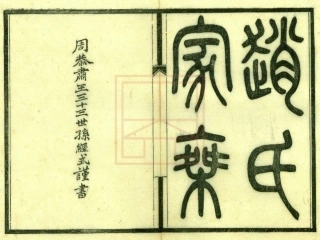 趙氏
家乘
周恭肅王三十三世孫經式謹書